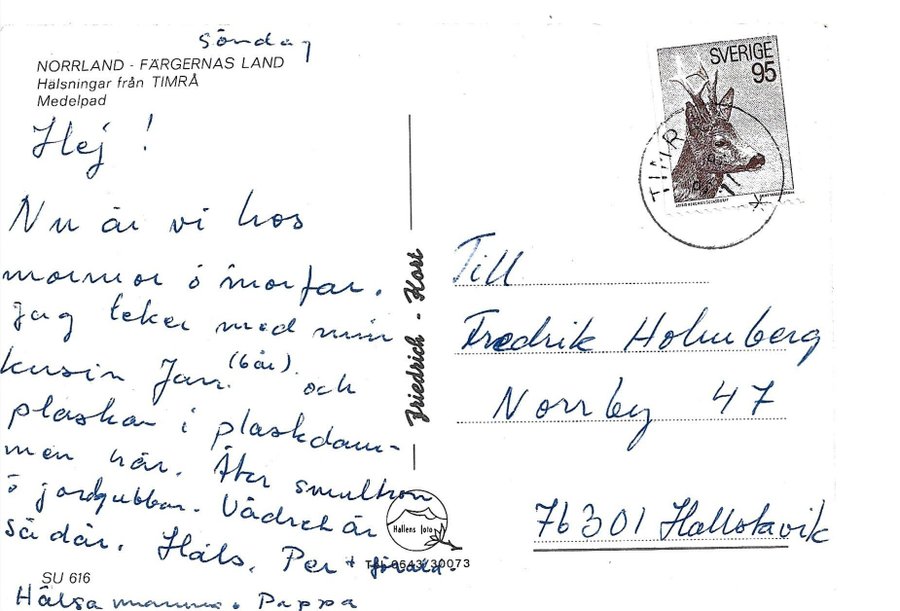 söndag
NORRLAND - FÄRGERNAS LAND
Hälsningar från TIMRÅ
Medelpad
Hej !
Nu är vi hos
mormor o morfar.
Jag leker med min
kusin Jan (6 år) och
plaskar i plaskdam-
men här. Äter smultron
o jordgubbar. Vädret är
så där. Häls. Per + föräld.
Hälsa mamma o Pappa
SU 616
Friedrich - Kort
Hallens foto
Tel 0643/30073
SVERIGE
95
TIMRÅ
Till
Fredrik Holmberg
Norrby 47
76301 Hallstavik